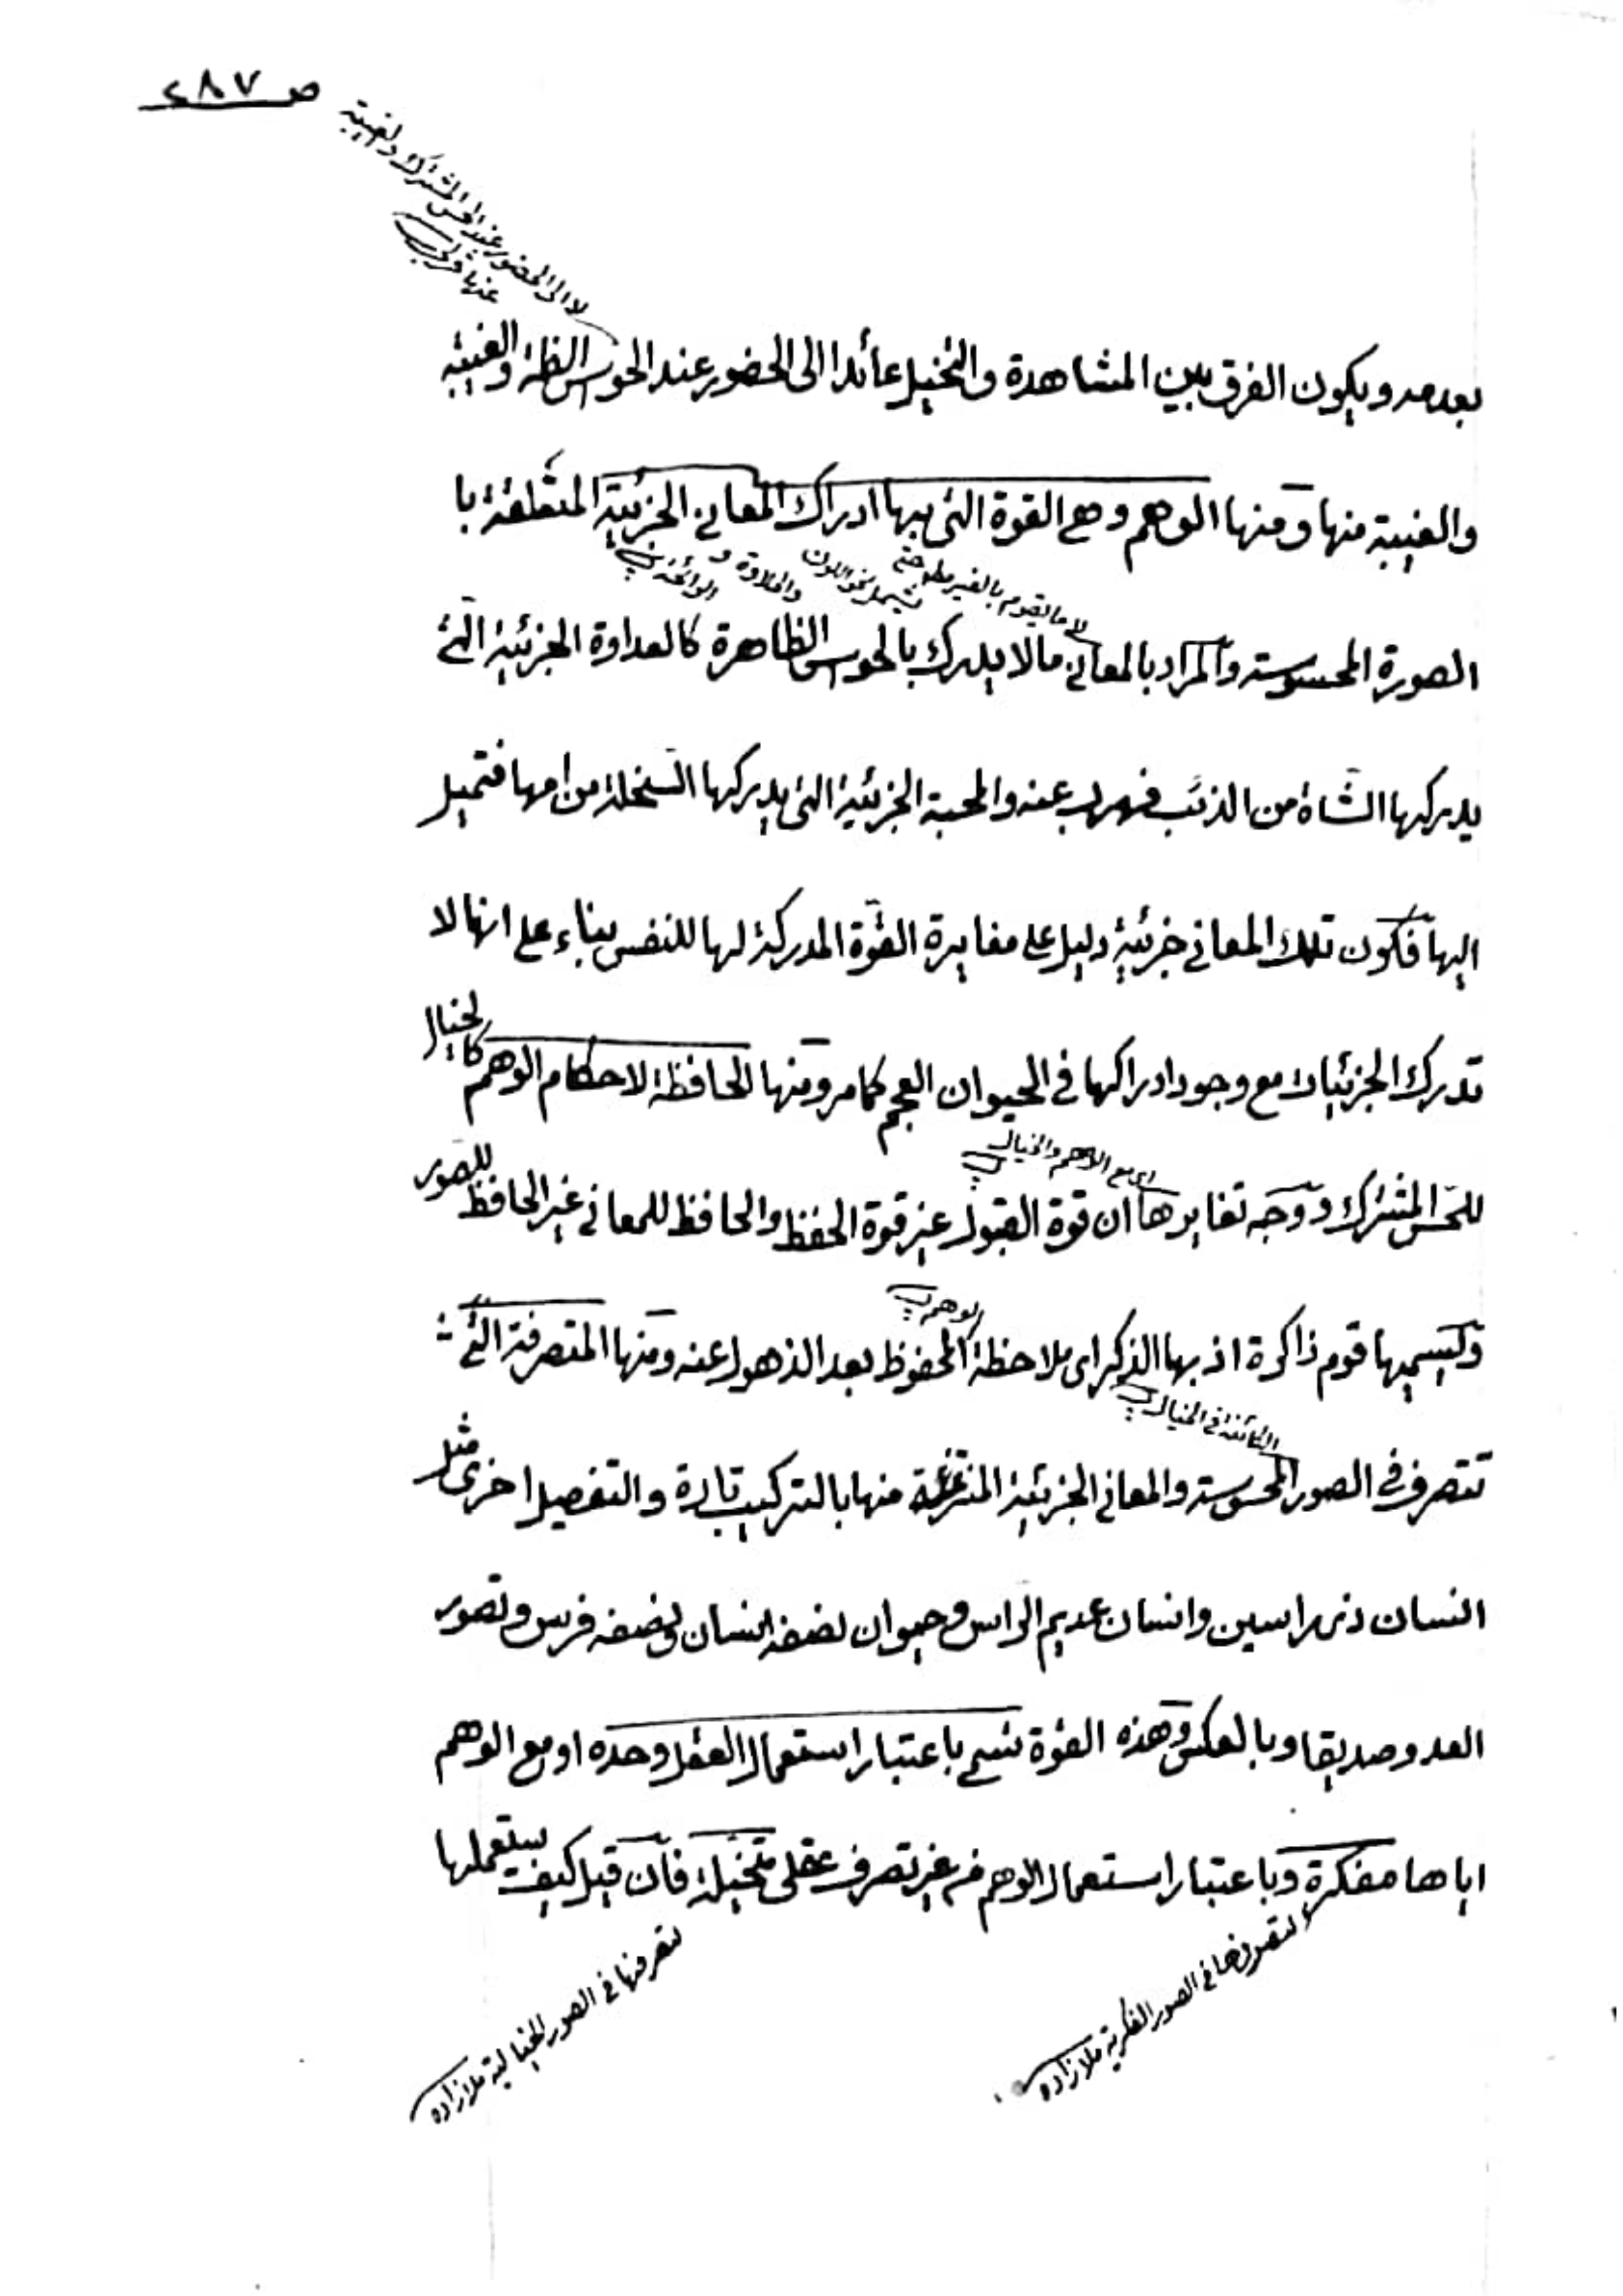 ص ٢٨٧
لا الى الحضور عند الحس المشترك والغيبة
عنها
بعدمه ويكون الفرق بين المشاهدة والتخيل عائدا الى الحضور عند الحوس الظة والغيبة
والغيبة منها ومنها الوهم وهى القوة التى بها ادراك المعانى الجزئية المتعلقة با
لا ما يقوم بالغير مطلقا حتى يشمل نحو اللون والحلاوة و الرائحة
الصورة المحسوسة والمراد بالمعانى مالا يدرك بالحوس الظاهرة كالعداوة الجزئية التى
يدركها الشاة من الذئب فهرب عنه والمحبة الجزئية التى يدركها السخلة من امها فتميل
اليها فكون تلك المعانى جزئية دليل على مغايرة القوة المدركة لها للنفس بناء على انها لا
تدرك الجزئيات مع وجود ادراكها فى الحيوان العجم كما مر ومنها الحافظة لاحكام الوهم كالخيال
اى مع الوهم والخيال
للحس المشترك ووجه تغايرها ان قوة القبول غير قوة الحفظ والحافظ للمعانى غير الحافظ للصور
الوهم
وتسميها قوم ذاكرة اذ بها الذكر اى ملاحظة المحفوظ بعد الذهول عنه ومنها المتصرفة التى
الكائنة فى الخيال
تتصرف فى الصور المحسوسة والمعانى الجزئية المنتزعة منها بالتركيب تارة والتفصيل اخرى مثل
انسان ذى راسين وانسان عديم الراس وحيوان نصفه انسان ونصفه فرس وتصور
العدو صديقا وبالعكس وهذه القوة تسمى باعتبار استعمال العقل وحده او مع الوهم
اياها مفكرة وباعتبار استعمال الوهم من غير تصرف عقلى متخيلة فان قيل كيف يستعملها
لتصرفها فى الصور الفكرية ملازاده
لتصرفها فى الصور الخيالية ملازاده